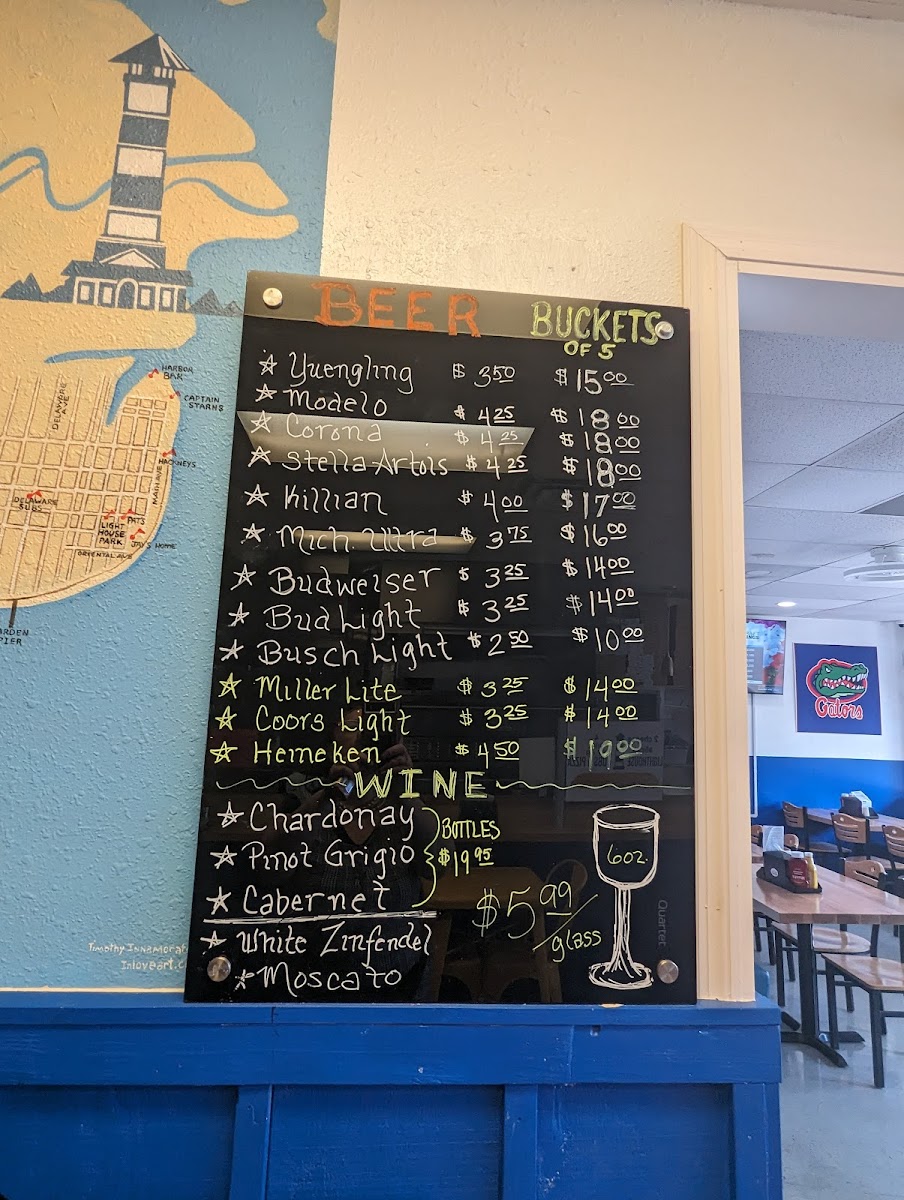 HARBOR
BAR
CAPTAIN
STARNS
DELAWARE
AVE
HACKNEYS
MAIN AVE
DELAWARE
SUBS
LIGHT
HOUSE
PARK
PATS
JAY'S HOME
ORIENTAL AVE
ARDEN
PIER
Timothy Innamorat
Inloveart.c
BEER
BUCKETS
OF 5
☆ Yuengling $3.50 $15.00
☆ Modelo $4.25 $18.00
☆ Corona $4.25 $18.00
☆ Stella Artois $4.25 $18.00
☆ Killian $4.00 $17.00
☆ Mich. Ultra $3.75 $16.00
☆ Budweiser $3.25 $14.00
☆ Bud Light $3.25 $14.00
☆ Busch Light $2.50 $10.00
☆ Miller Lite $3.25 $14.00
☆ Coors Light $3.25 $14.00
☆ Heineken $4.50 $19.00
WINE
☆ Chardonay
☆ Pinot Grigio
☆ Cabernet
BOTTLES
$19.95
☆ White Zinfendel
☆ Moscato
$5.99/glass
6oz.
Quartet
Gators